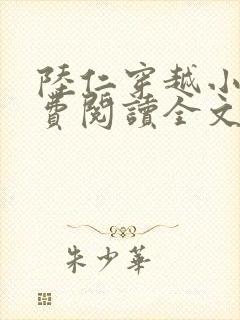 陸仁穿越小
費閱讀全文
朱少華